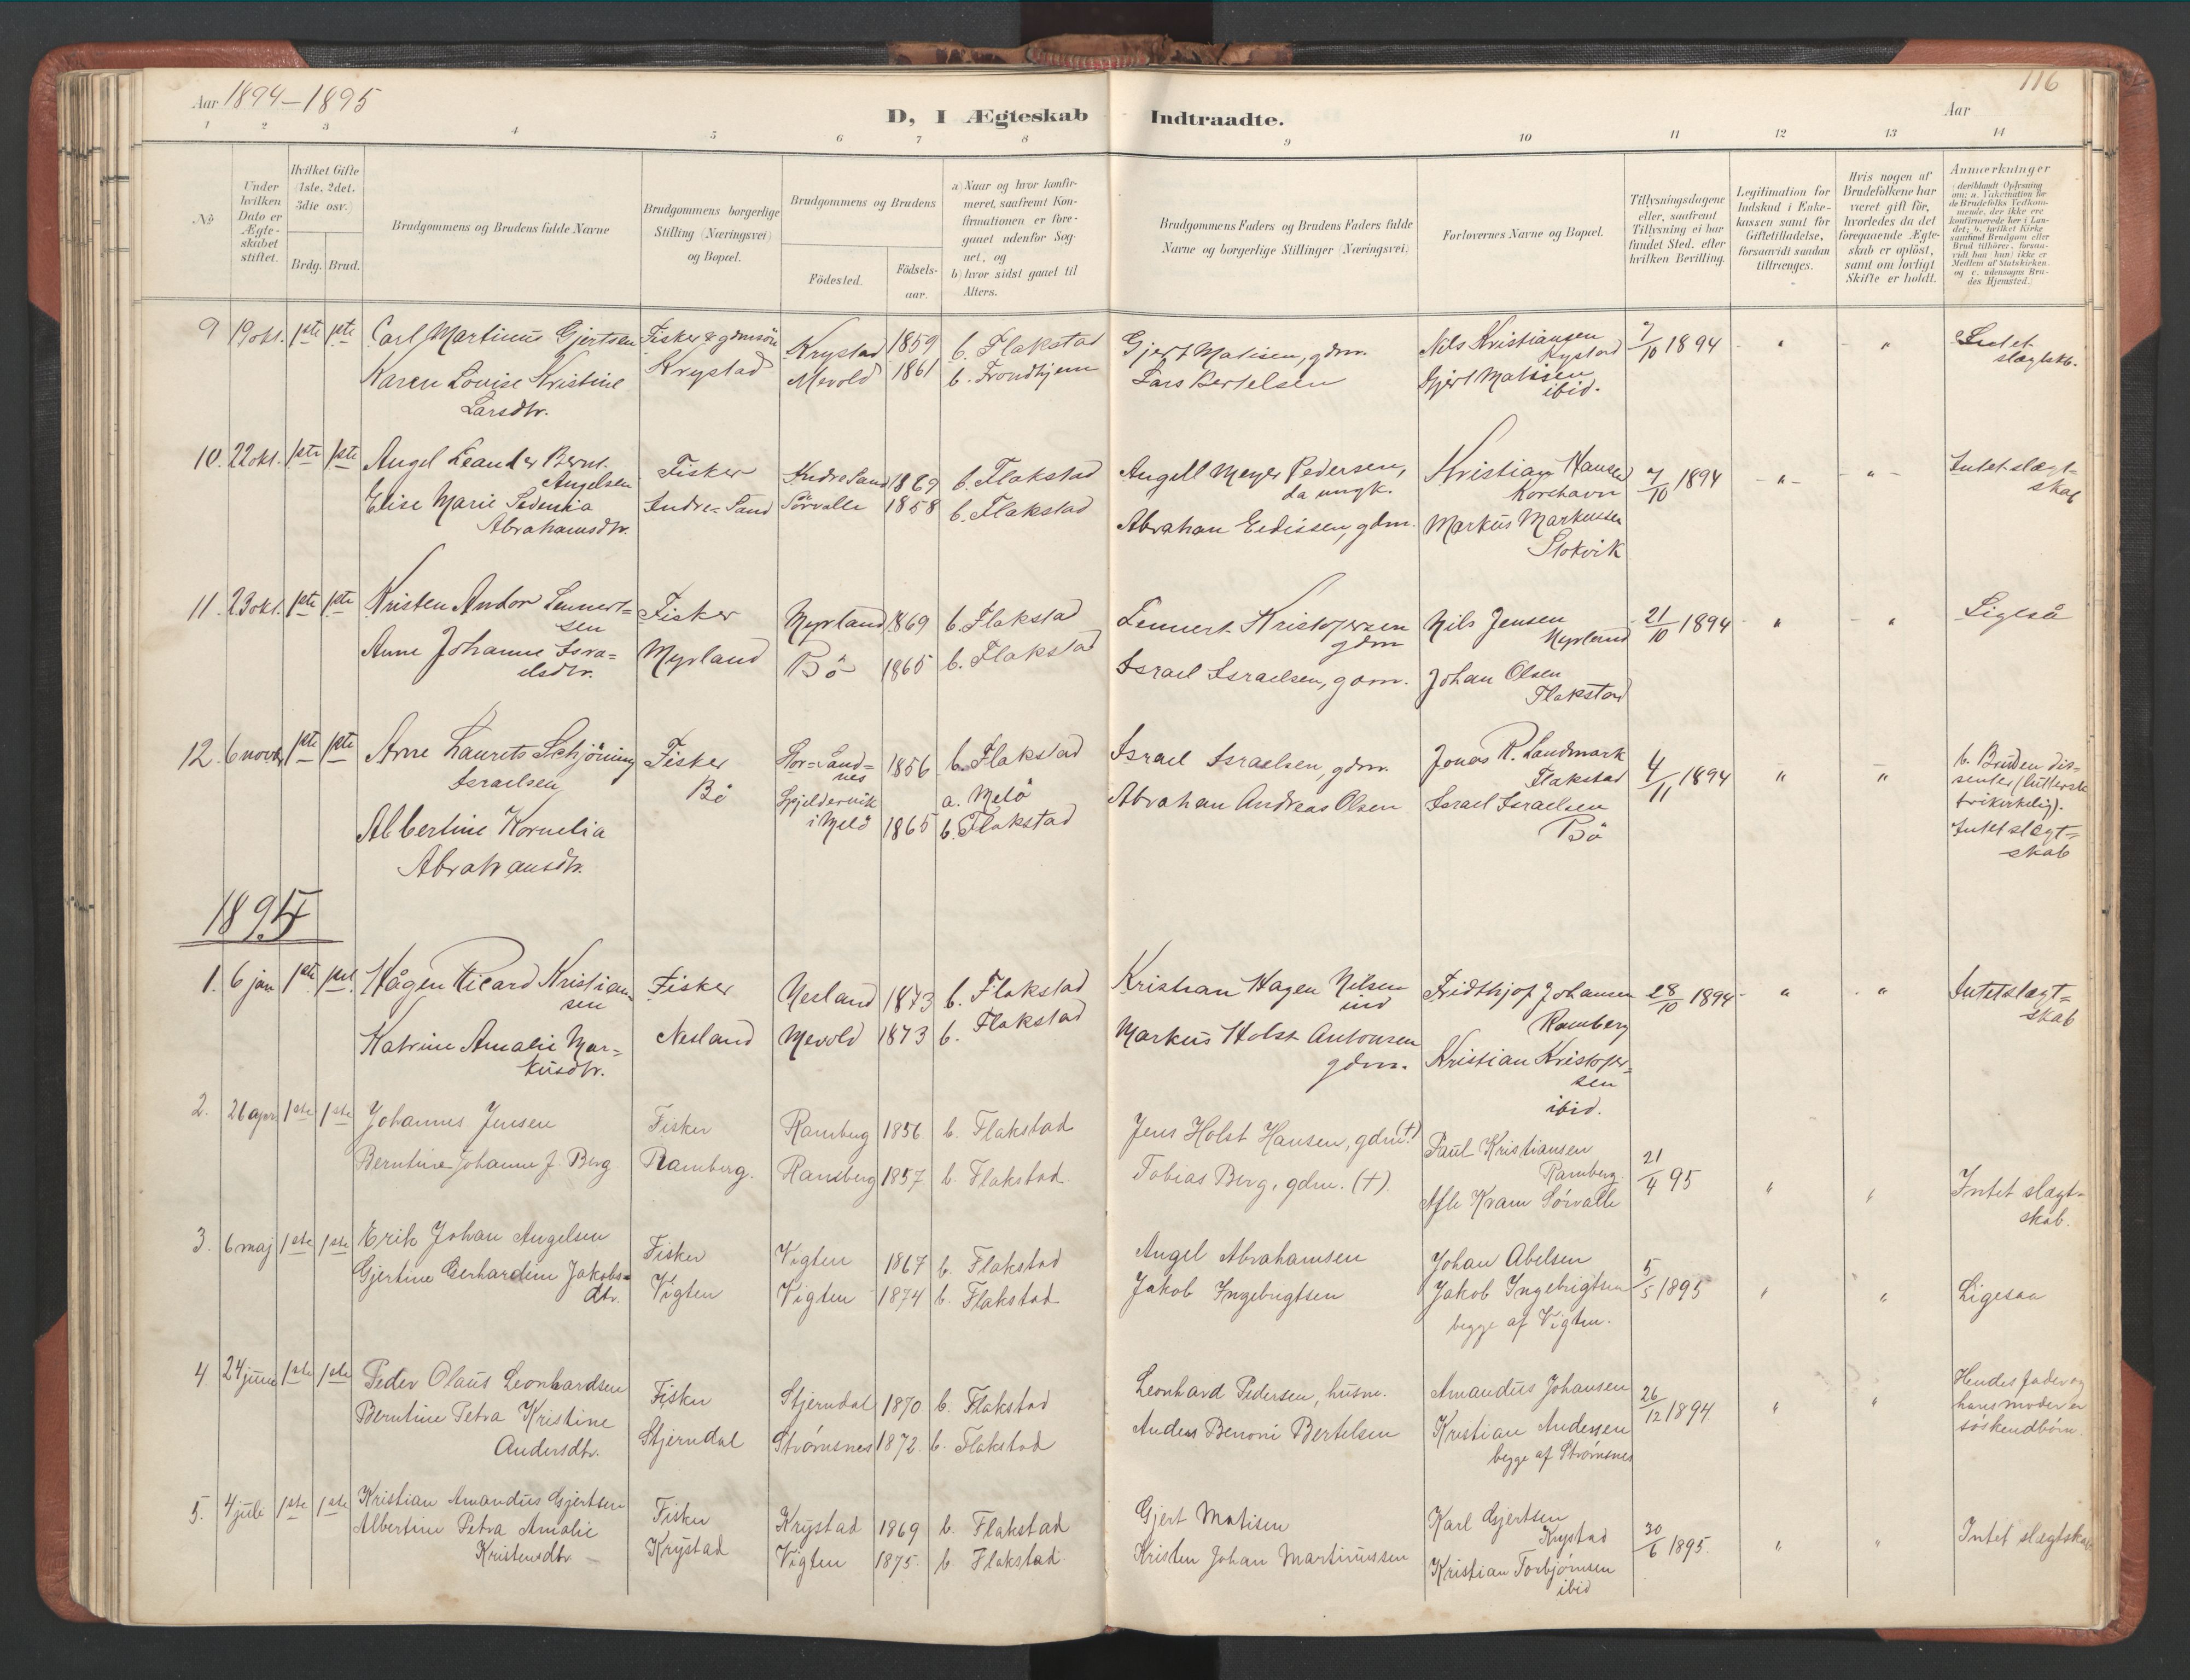 116
Aar 1894–1895
D, I Ægteskab Indtraadte.
Aar
1 2 3 4 5 6 7 8 9 10 11 12 13 14
No
Under hvilken Dato er Ægte-skabet stiftet.
Hvilket Gifte (1ste, 2det. 3die osv.)
Brdg. Brud.
Brudgommens og Brudens fulde Navne
Brudgommens borgerlige Stilling (Næringsvei) og Bopæl.
Brudgommens og Brudens
Fødested.
Fødsels-aar.
a) Naar og hvor konfir-meret, saafremt Kon-firmationen er fore-gaaet udenfor Sog-net, og
b) hvor sidst gaaet til Alters.
Brudgommens Faders og Brudens Faders fulde Navne og borgerlige Stillinger (Næringsvei)
Forlovernes Navne og Bopæl.
Tillysningsdagene eller, saafremt Tillysning ei har fundet Sted, efter hvilken Bevilling.
Legitimation for Indskud i Enke-kassen samt for Giftetilladelse, forsaavidt saadan tiltrænges.
Hvis nogen af Brudefolkene har været gift før, hvorledes da det foregaaende Ægte-skab er opløst, samt om lovligt Skifte er holdt.
Anmærkninger
(deriblandt Oplysning om: a. Vakcination for de Brudefolks Vedkom-mende, der ikke ere konfirmerede her i Lan-det; b. hvilket Kirke-samfund Brudgom eller Brud tilhører, forsaa-vidt han (hun) ikke er Medlem af Statskirken, og c. udensogns Bru-des Hjemsted.)
9 19 okt. 1ste 1ste Carl Martinus Gjertsen Fisker & gdmsøn Krystad 1859 b. Flakstad Gjert Matisen, gdm. Nils Kristiansen 7/10 1894 " " Intet
Krystad
Karen Lovise Kristine Krystad Mevold 1861 b. Trondhjem Lars Bertelsen Gjert Matisen slægtskb.
Larsdtr. ibid.
10. 22 okt. 1ste 1ste Angel Leander Bernt. Fisker Indre Sand 1869 b. Flakstad Angell Meyer Pedersen, Kristian Hansen 7/10 1894 " " Intet slægt=
Angelsen da ungk. Korshavn skab
Elise Marie Sedenia Indre=Sand Sørvalle 1858 b. Flakstad Abraham Eedissen, gdm. Markus Markussen
Abrahamsdtr. Stokvik
11. 23 okt. 1ste 1ste Kristen Andor Lennert= Fisker Myrland 1869 b. Flakstad Lennert Kristofersen Nils Jensen 21/10 1894 " " Ligeså
sen gdm Myrland
Anne Johanne Isra= Myrland Bö 1865 b. Flakstad Israel Israelsen, gdm. Johan Olsen
elsdtr. Flakstad
12. 6 novbr 1ste 1ste Arne Laurets Schjöning Fisker Stor=Sand= 1856 b. Flakstad Israel Israelsen, gdm. Jonas R. Landmark 4/11 1894 " " b. Bruden dis=
Israelsen Bö nes Flakstad senter (luthersk
Albertine Kornelia Spjeldervik a. Melö Abraham Andreas Olsen Israel Israelsen frikirkelig).
i Melö 1865 b. Flakstad Bö Intet slægt=
Abrahamsdtr. skab
1895
1. 6 jan 1ste 1ste Hågen Ricard Kristian= Fisker Nesland 1873 b. Flakstad Kristian Hagen Nilsen Fridthjof Johansen 28/10 1894 " " Intet slægt=
sen ind Ramberg skab
Katrine Amalie Mar= Nesland Mevold 1873 b. Flakstad Markus Holst Antonsen Kristian Kristofer=
kusdtr. gdm. sen
ibid.
2. 21 apr 1ste 1ste Johannes Jensen Fisker Ramberg 1856 b. Flakstad Jens Holst Hansen, gdm (†) Paul Kristiansen 21/4 95 " " Intet slægt=
Ramberg skab.
Berntine Johanne J. Berg Ramberg. Ramberg 1857 b. Flakstad. Tobias Berg, gdm. (†). Kram Sørvalle
3. 6 maj 1ste 1ste Erik Johan Angelsen Fisker Vigten 1867 b. Flakstad Angel Abrahamsen Johan Abelsen 5/5 1895 " " Ligesaa
Gjertine Gerhardine Jakobs= Vigten Vigten 1874 b. Flakstad Jakob Ingebrigtsen Jakob Ingebrigtsen
dtr. begge af Vigten.
4. 24 juni 1ste 1ste Peder Olaus Leonhardsen Fisker Stjerndal 1870 b. Flakstad Leonhard Pedersen, husm. Amandus Johansen 26/12 1894 " " Hendes fader og
Berntine Petra Kristine Stjerndal Strømsnes 1872. b. Flakstad Anders Benoni Bertelsen Kristian Andersen hans moder er
Andersdtr. begge af Strømsnes søskendbørn.
5. 4 juli 1ste 1ste Kristian Amandus Gjertsen Fisker Krystad 1869 b. Flakstad Gjert Matisen Karl Gjertsen 30/6 1895. " " Intet slægtskab
Krystad
Albertine Petra Amalie Krystad Vigten 1875. b Flakstad. Kristen Johan Martinussen Kristian Torbjørnsen
Kristensdtr. ibid